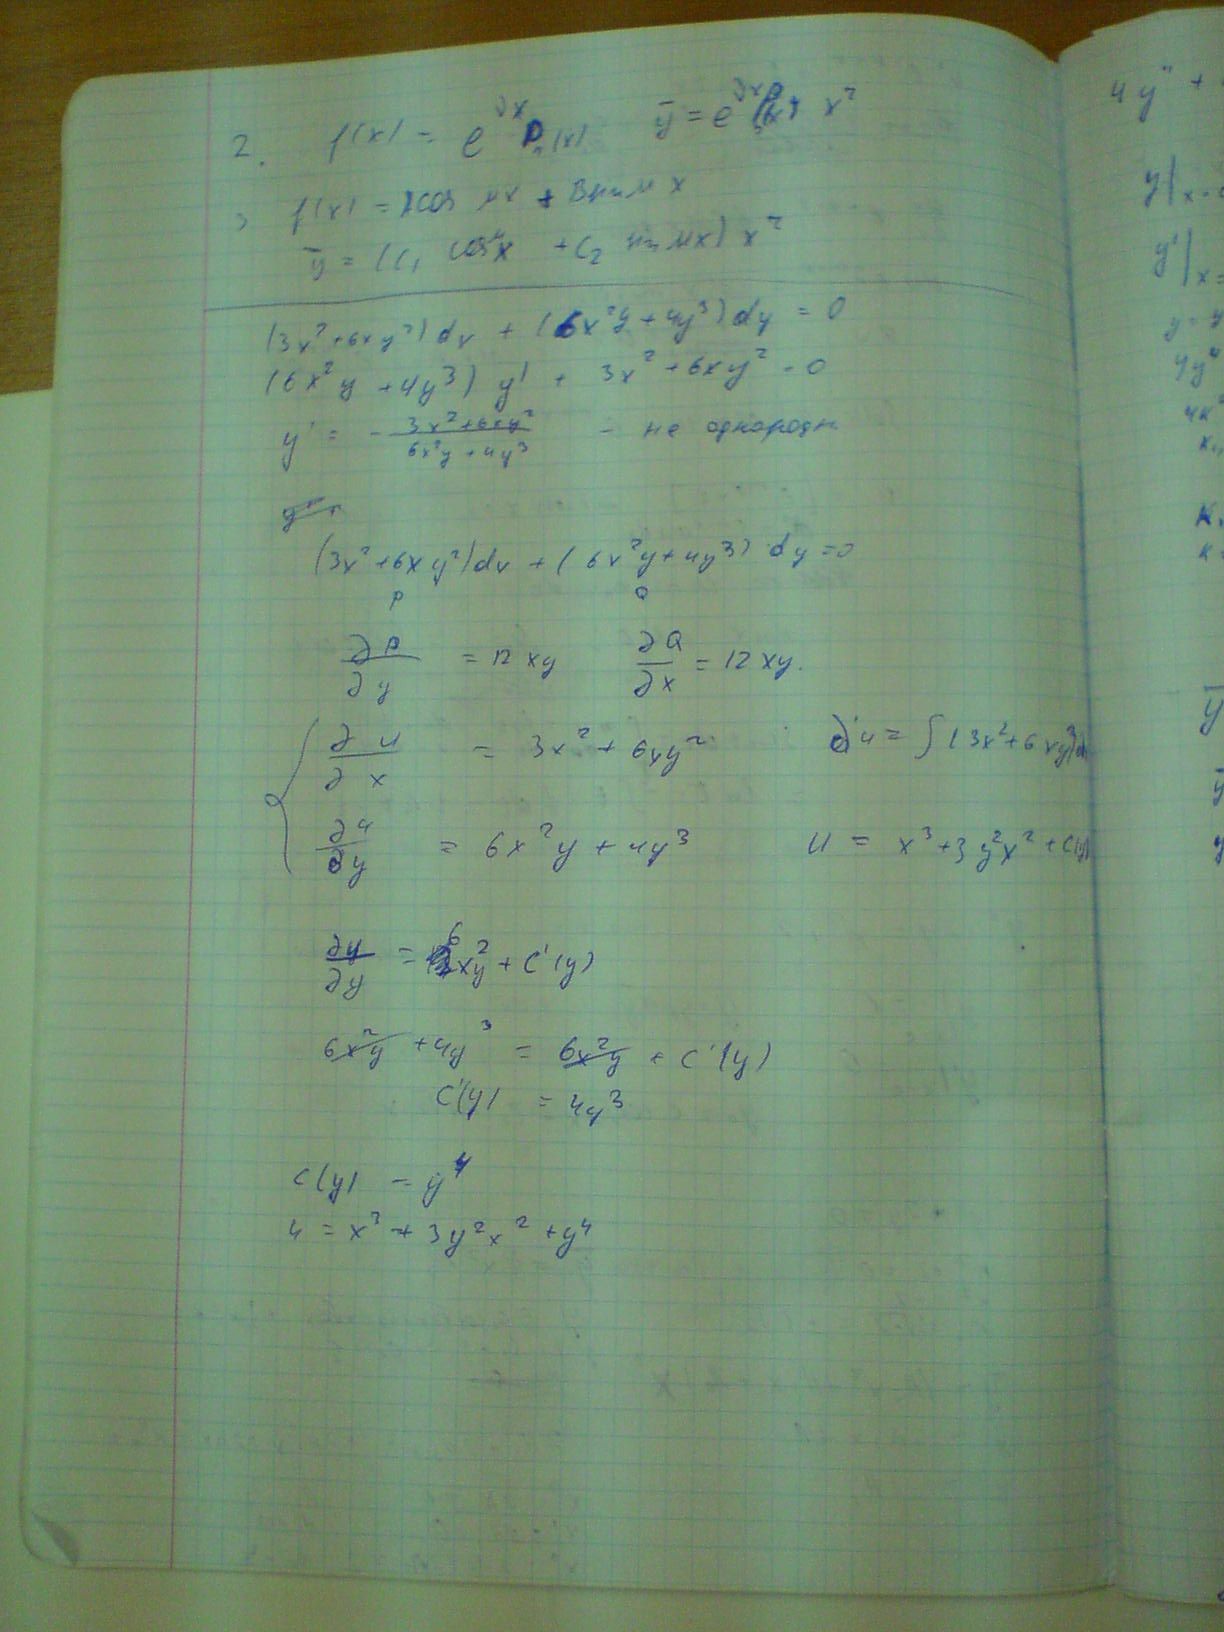 2. f(x) = e^{γx} P_n(x) ȳ = e^{γx} x^2
3 f(x) = A cos μx + B sin μx
ȳ = (C_1 cos μx + C_2 sin μx) x^2
(3x^2+6xy^2) dx + (6x^2y+4y^3) dy = 0
(6x^2y+4y^3) y' + 3x^2+6xy^2 = 0
y' = - (3x^2+6xy^2)/(6x^2y+4y^3) - не однородн
(3x^2+6xy^2)dx + (6x^2y+4y^3) dy = 0
P Q
∂P/∂y = 12xy ∂Q/∂x = 12xy.
{ ∂u/∂x = 3x^2+6xy^2 ∂u = ∫(3x^2+6xy^2)d
∂u/∂y = 6x^2y+4y^3 u = x^3+3y^2x^2+C(y)
∂u/∂y = 6x^2y + C'(y)
6x^2y + 4y^3 = 6x^2y + C'(y)
C'(y) = 4y^3
C(y) = y^4
u = x^3 + 3y^2x^2 + y^4
4y" +
y|x =
y'|x =